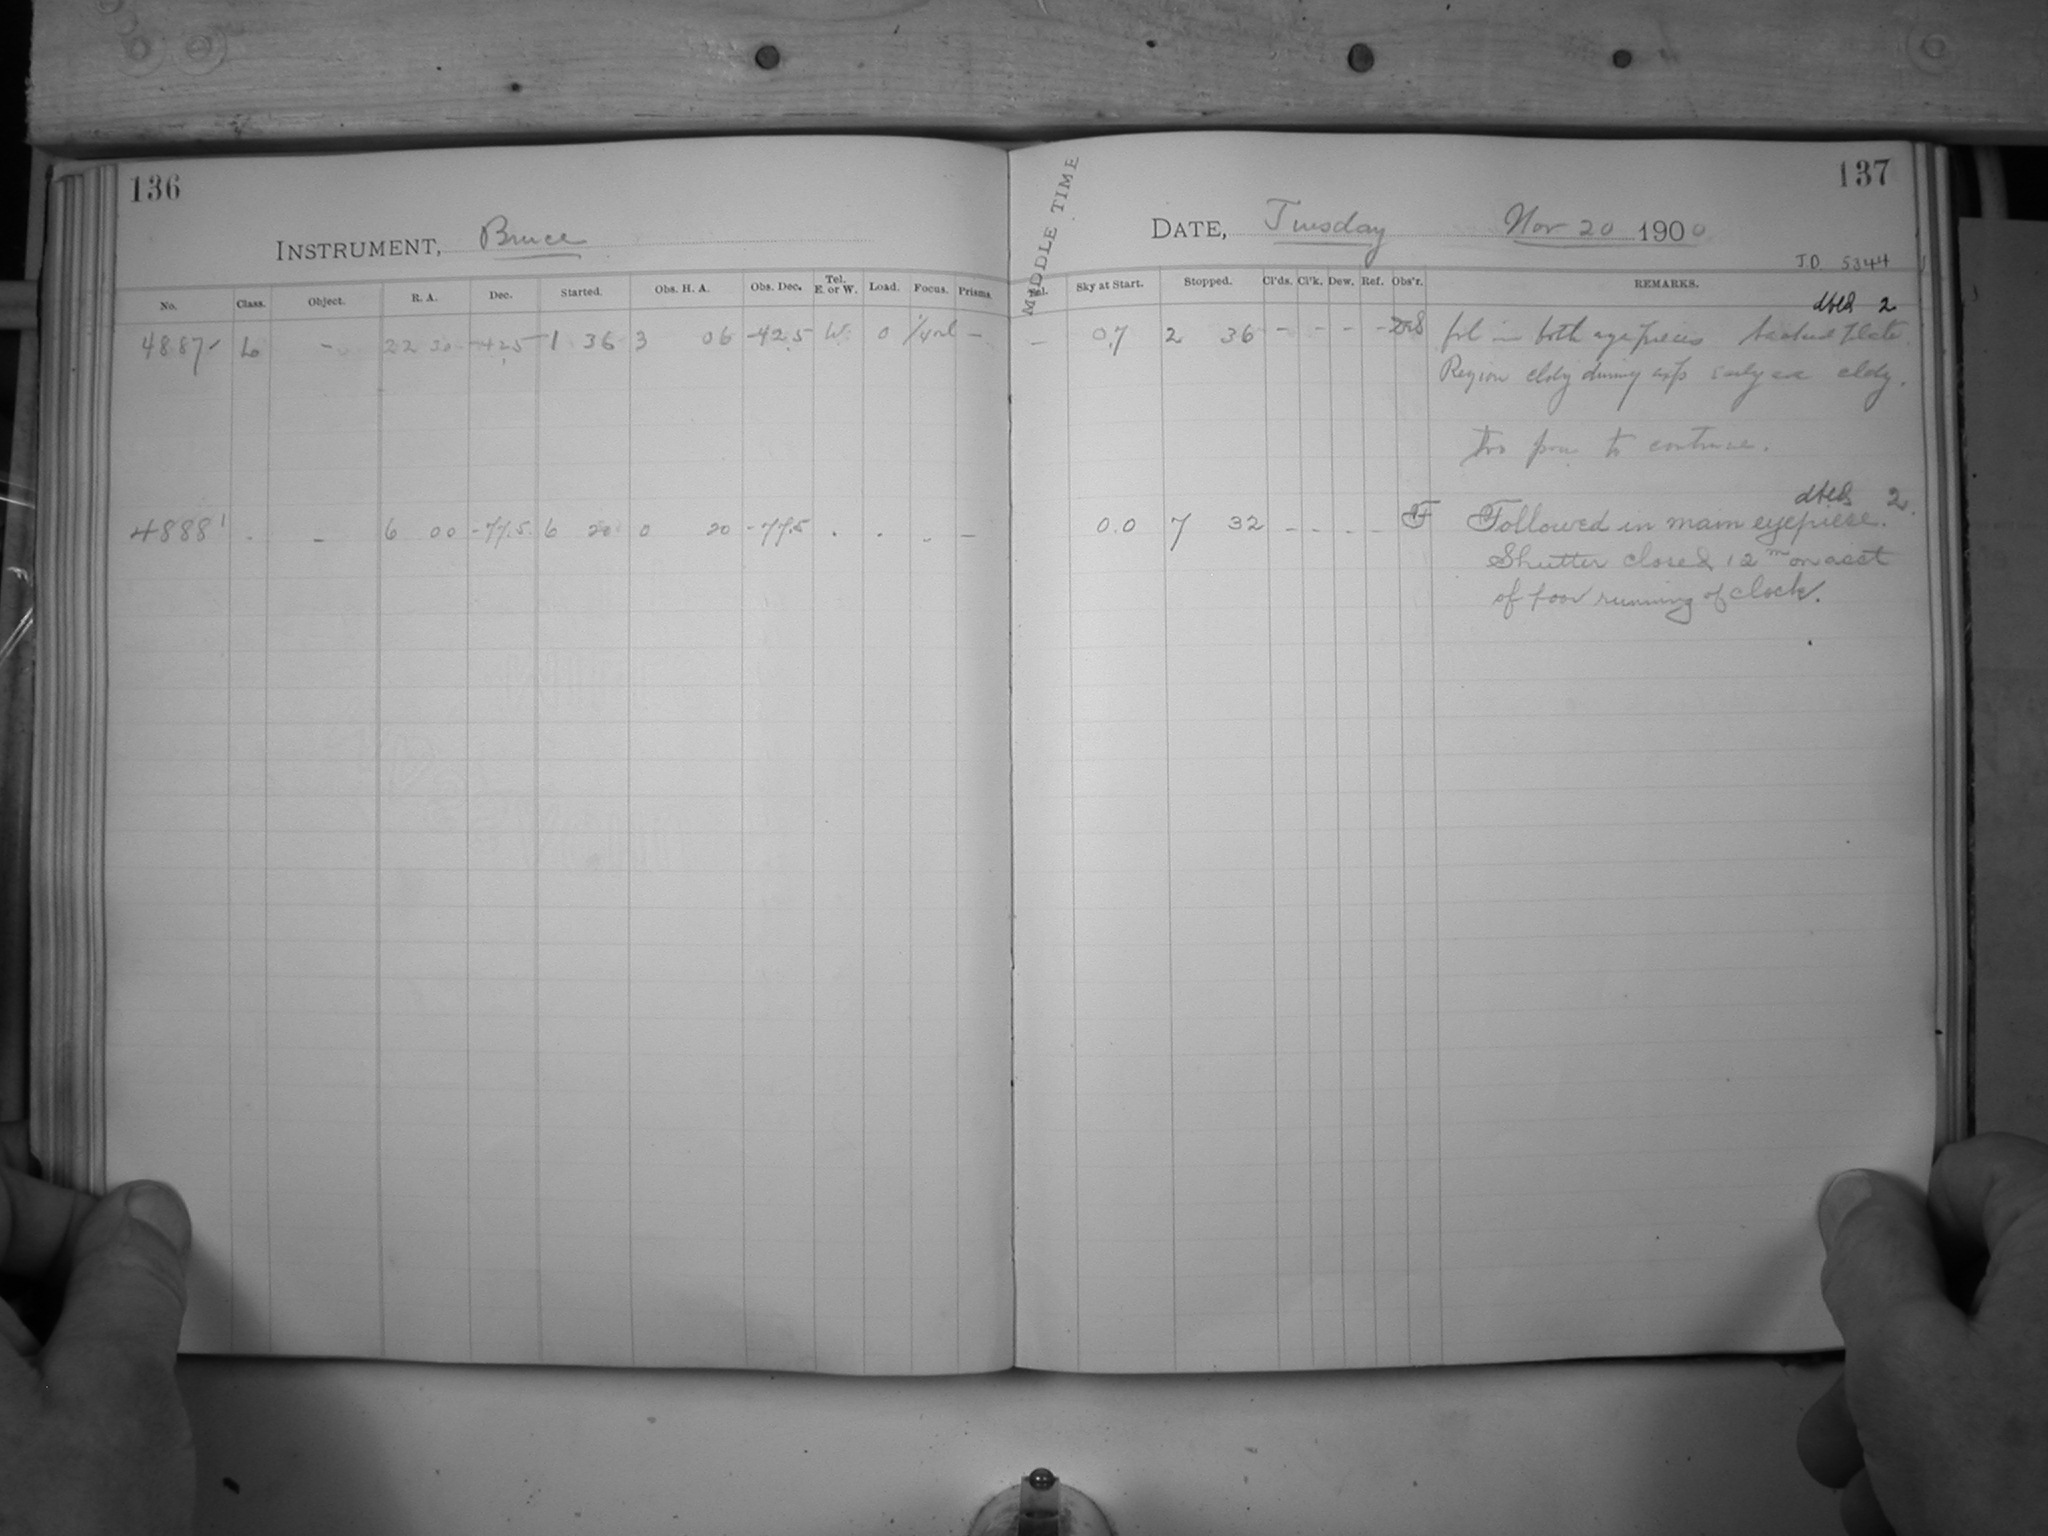 136
INSTRUMENT, Bruce
No. Class. Object. R. A. Dec. Started. Obs. H. A. Obs. Dec. Tel. E. or W. Load. Focus. Prisms
4887 L - 22 30 -42.5 1 36 3 06 -42.5 W 0 -
4888 . - 6 00 -77.5 6 20 0 20 -77.5 . . . -
137
MIDDLE TIME
DATE, Tuesday Nov 20 1900
J.D. 5344
Sky at Start. Stopped. Cl'ds. Cl'k. Dew. Ref. Obs'r. REMARKS.
dbld 2
- 0.7 2 36 - - - - fol in both eyepieces backed plate.
Region cldy during exp cldy.
Too poor to continue.
dbld 2
0.0 7 32 - - - - F Followed in main eyepiece.
Shutter closed 12m on acct
of poor running of clock.